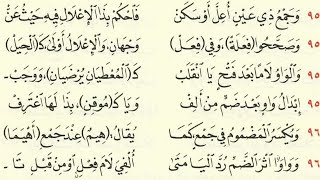 ٩٥ وَجَمْعُ ذِي عَيْنٍ أُعِلَّ أَوْ سَكَنْ فَاحْكُمْ بِذَا الْإِعْلَالِ فِيهِ حَيْثُ عَنّْ
٩٥ وَصَحَّحُوا (فِعَلَةً)، وَفِي (فِعَلْ) وَجْهَانِ، وَالْإِعْلَالُ أَوْلَى كَـ(الْحِيَلْ)
٩٥ وَالْوَاوُ لَامًا بَعْدَ فَتْحٍ يَا انْقَلَبْ كَـ(الْمُعْطَيَانِ يُرْضَيَانِ)، وَوَجَبْ
٩٥ إِبْدَالُ وَاوٍ بَعْدَ ضَمٍّ مِنْ أَلِفْ وَيَا كَـ(مُوقِنٍ)، بِذَا لَهَا اعْتُرِفْ
٩٦ وَيُكْسَرُ الْمَضْمُومُ فِي جَمْعٍ كَمَا يُقَالُ: (هِيمٌ) عِنْدَ جَمْعِ (أَهْيَمَا)
٩٦ وَوَاوًا اثْرَ الضَّمِّ رُدَّ الْيَا مَتَى أُلْفِيَ لَامَ فِعْلٍ اوْ مِنْ قَبْلِ تَا -